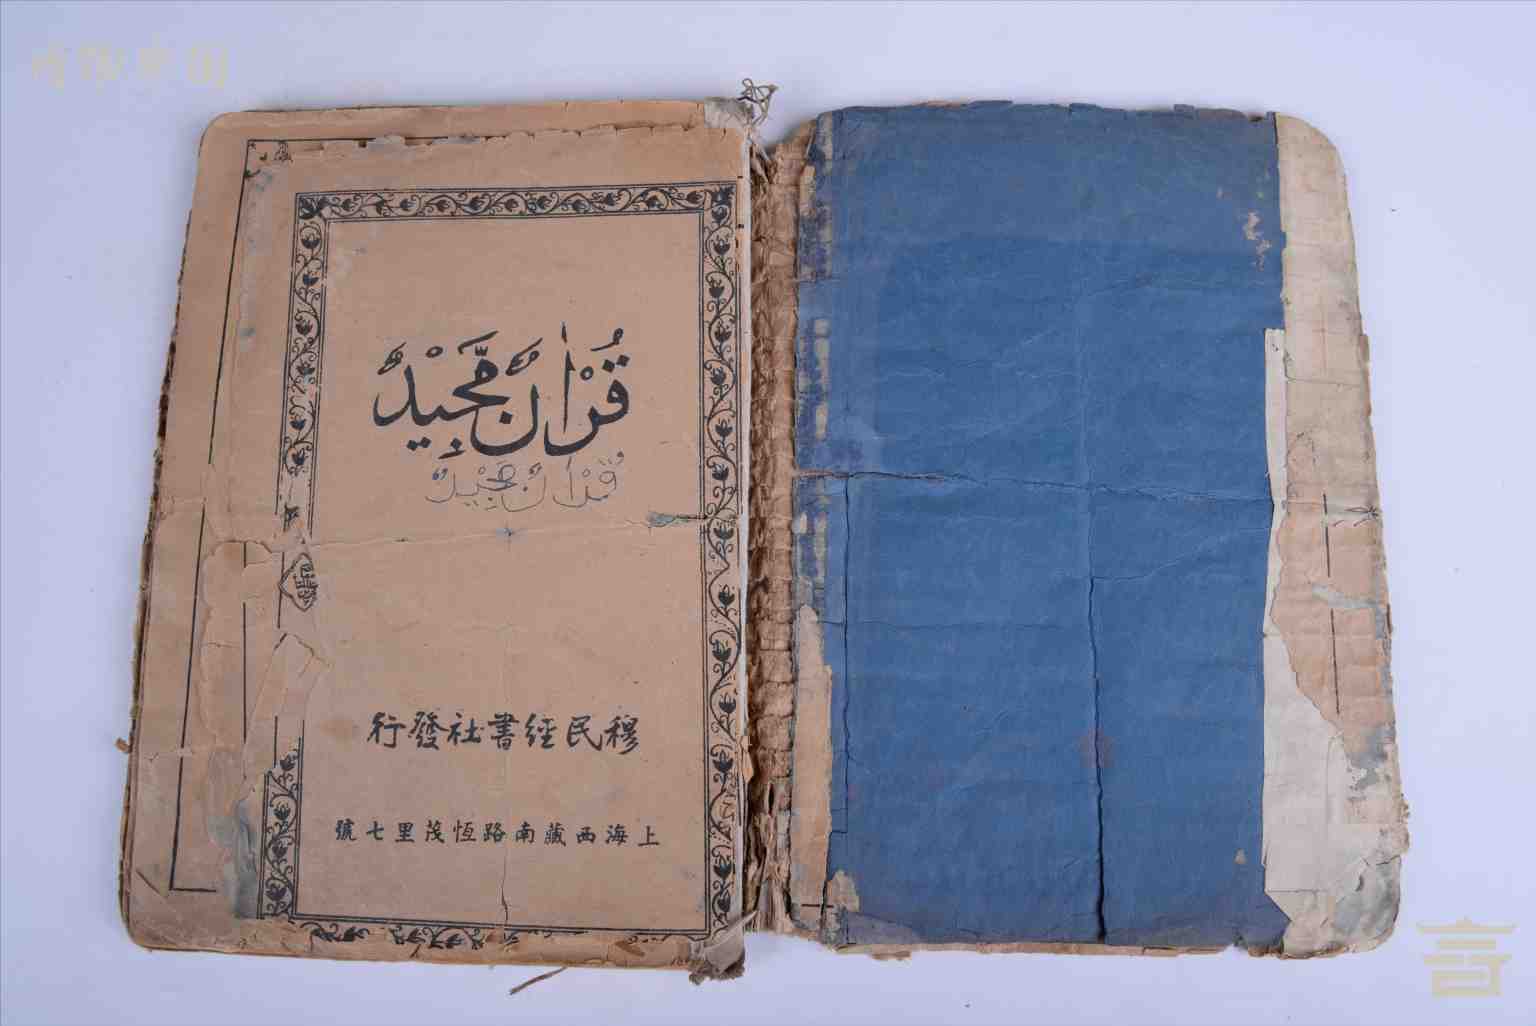 قُرْاٰنٌ مَّجِيْدٌ
قُرْاٰنٌ مَّجِيْدٌ
穆民經書社發行
上海西藏南路恆茂里七號
言